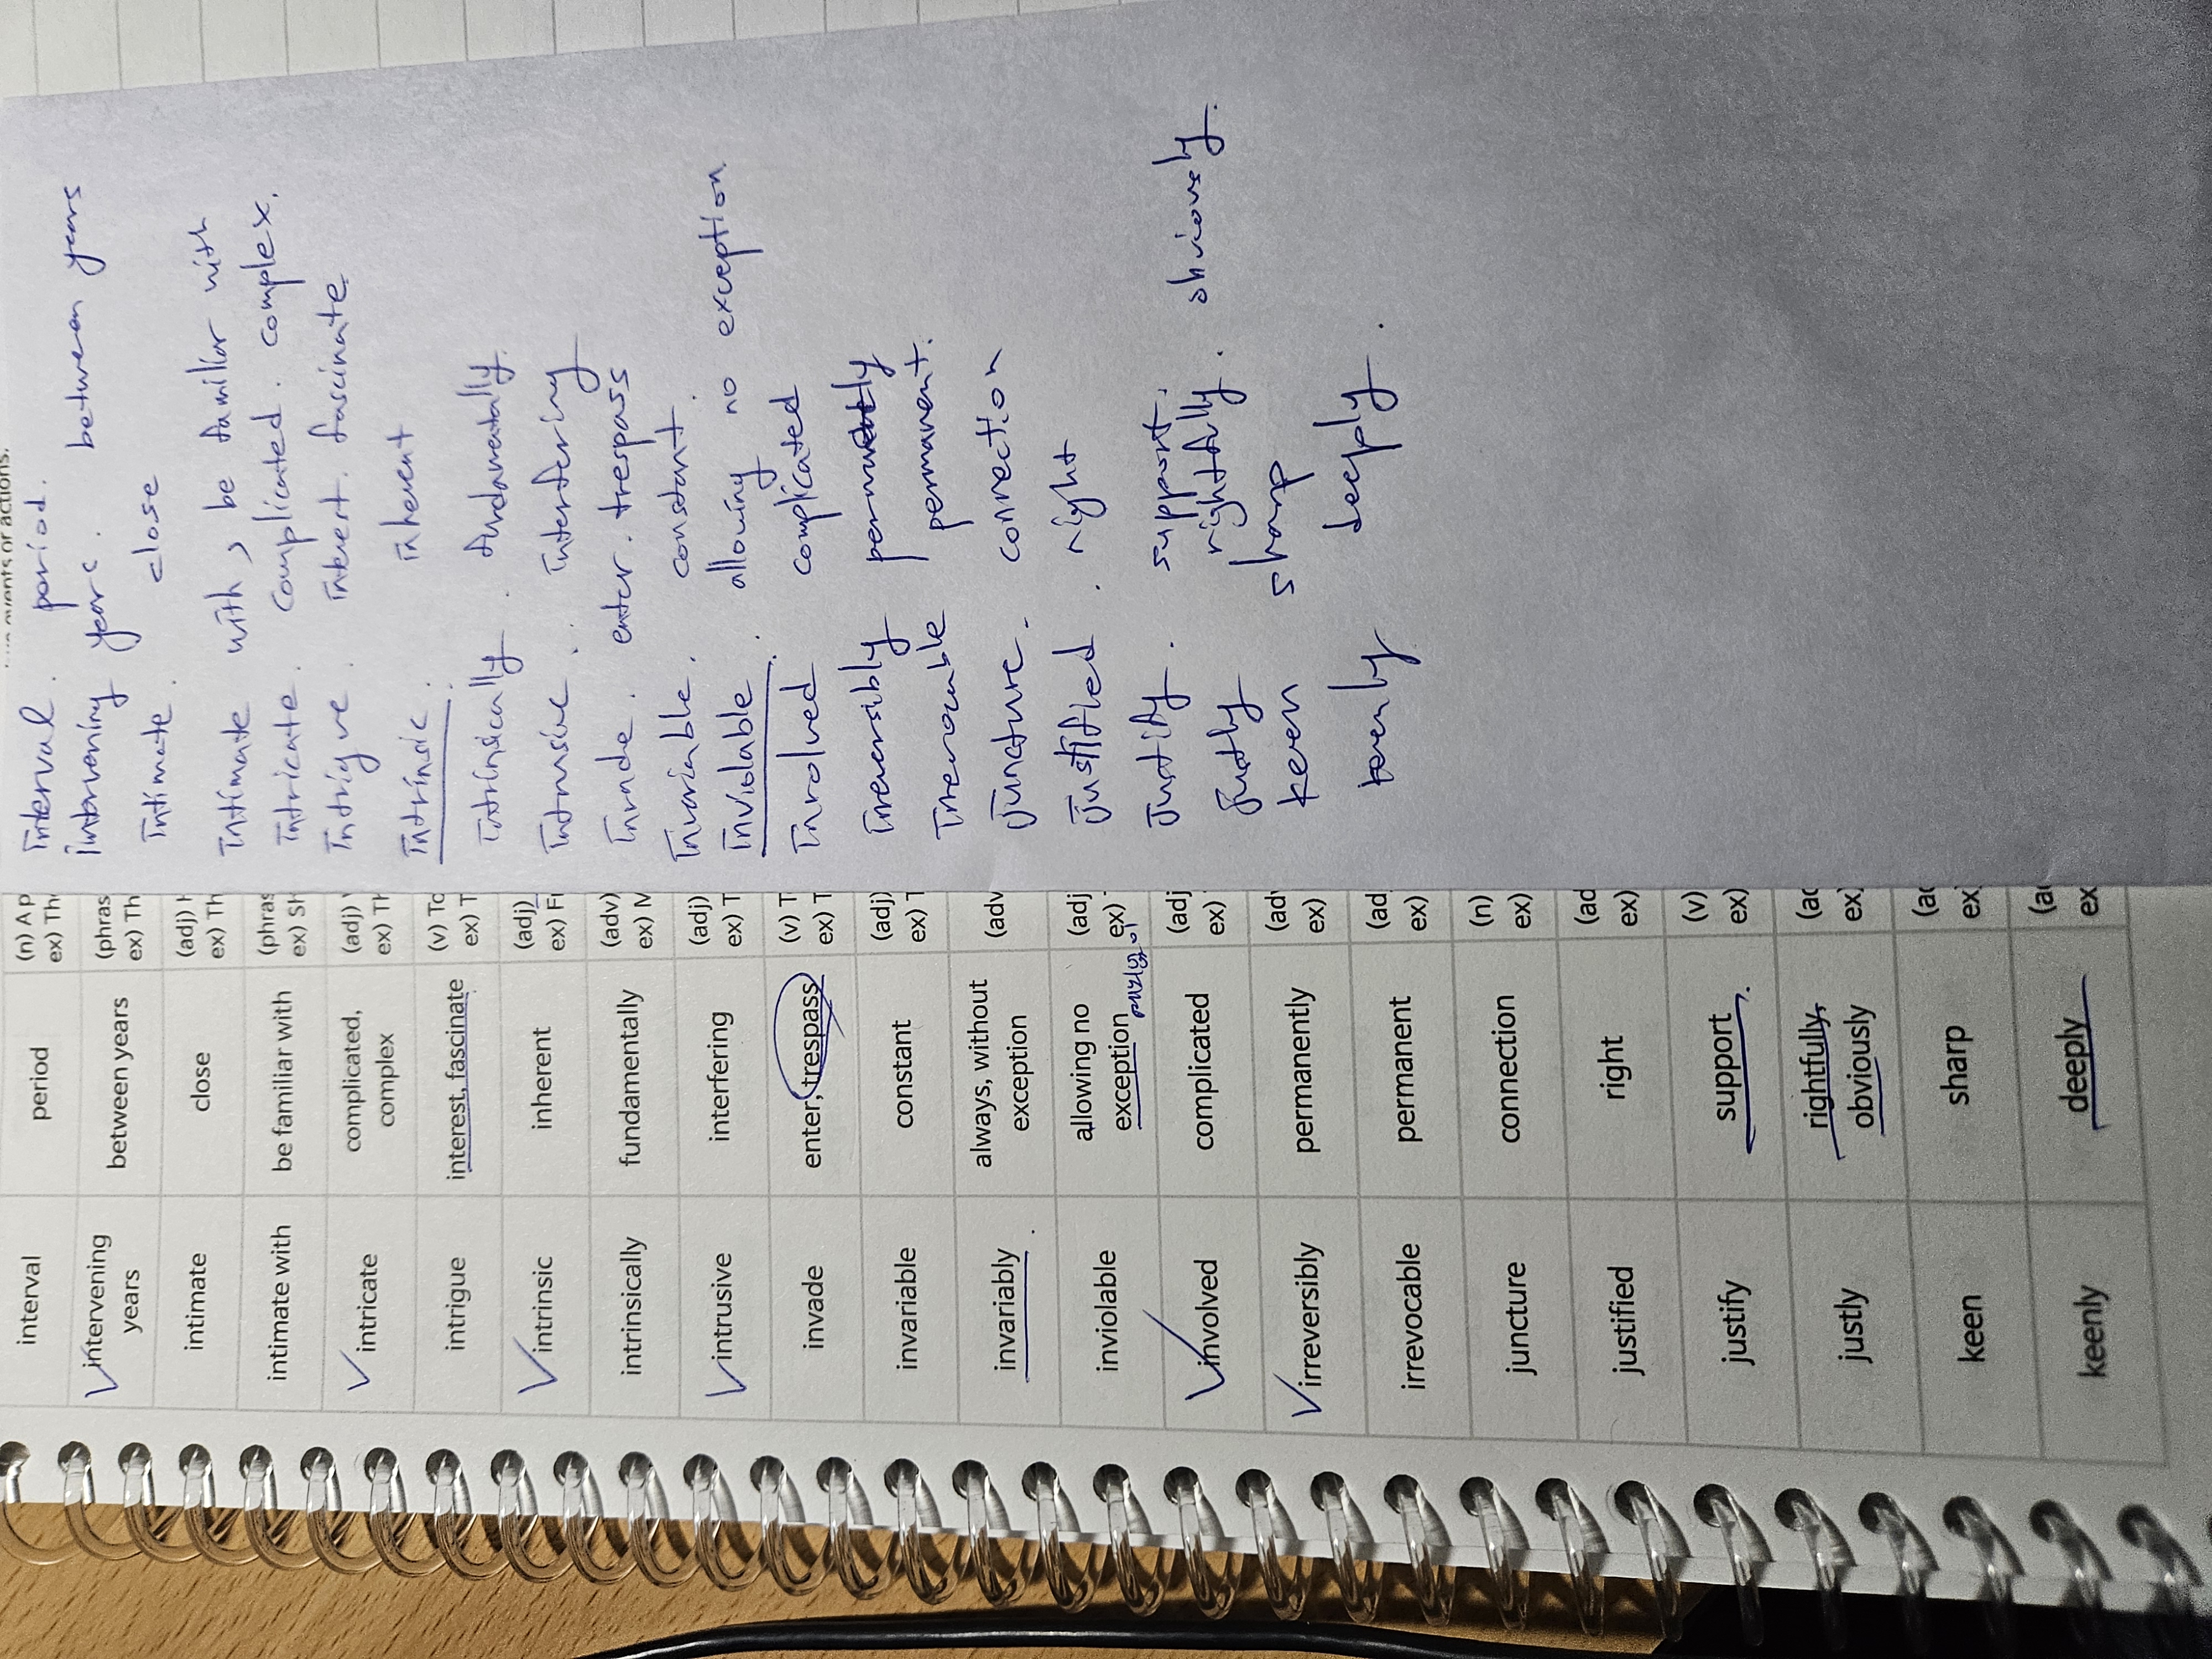 interval period (n) A p
ex) Th
intervening years between years (phras
ex) Th
intimate close (adj) H
ex) Th
intimate with be familiar with (phras
ex) Sh
intricate complicated, complex (adj) V
ex) Th
intrigue interest, fascinate (v) To
ex) T
intrinsic inherent (adj)
ex) Fi
intrinsically fundamentally (adv)
ex) M
intrusive interfering (adj)
ex) T
invade enter, trespass (v) T
ex) T
invariable constant (adj)
ex) T
invariably always, without exception (adv
inviolable allowing no exception (adj
ex)
involved complicated (adj
ex)
irreversibly permanently (adv
ex)
irrevocable permanent (ad
ex)
juncture connection (n)
ex)
justified right (ad
ex)
justify support (v)
ex)
justly rightfully, obviously (ad
ex)
keen sharp (ad
ex
keenly deeply (a
ex
events or actions.
interval. period.
intervening years. between years
intimate. close
intimate with, be familiar with
intricate. complicated. complex.
intrigue. interest. fascinate
intrinsic. inherent
intrinsically. fundamentally.
intrusive. interfering
invade. enter. trespass
invariable. constant.
inviolable. allowing no exception.
involved complicated
irreversibly permently
irrevocable permanent.
juncture. connection
justified. right
justify. support.
justly rightfully. obviously.
keen sharp
keenly deeply.